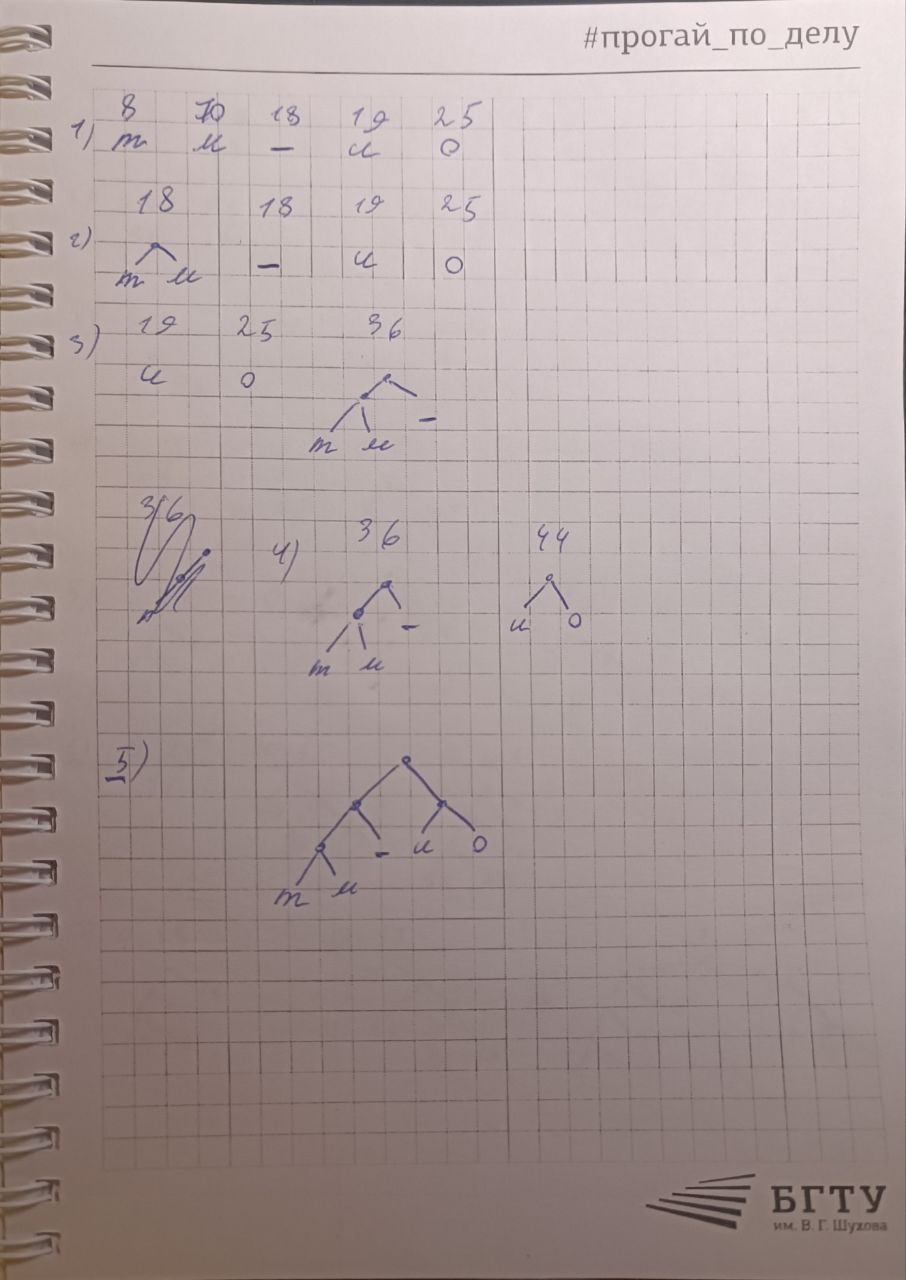 #прогай_по_делу
8 10 18 19 25
1) т м – и о
18 18 19 25
2) т м – и о
19 25 36
3) и о
т м –
36
4) 36 44
и о
т м –
5)
– и о
т м
БГТУ
им. В. Г. Шухова